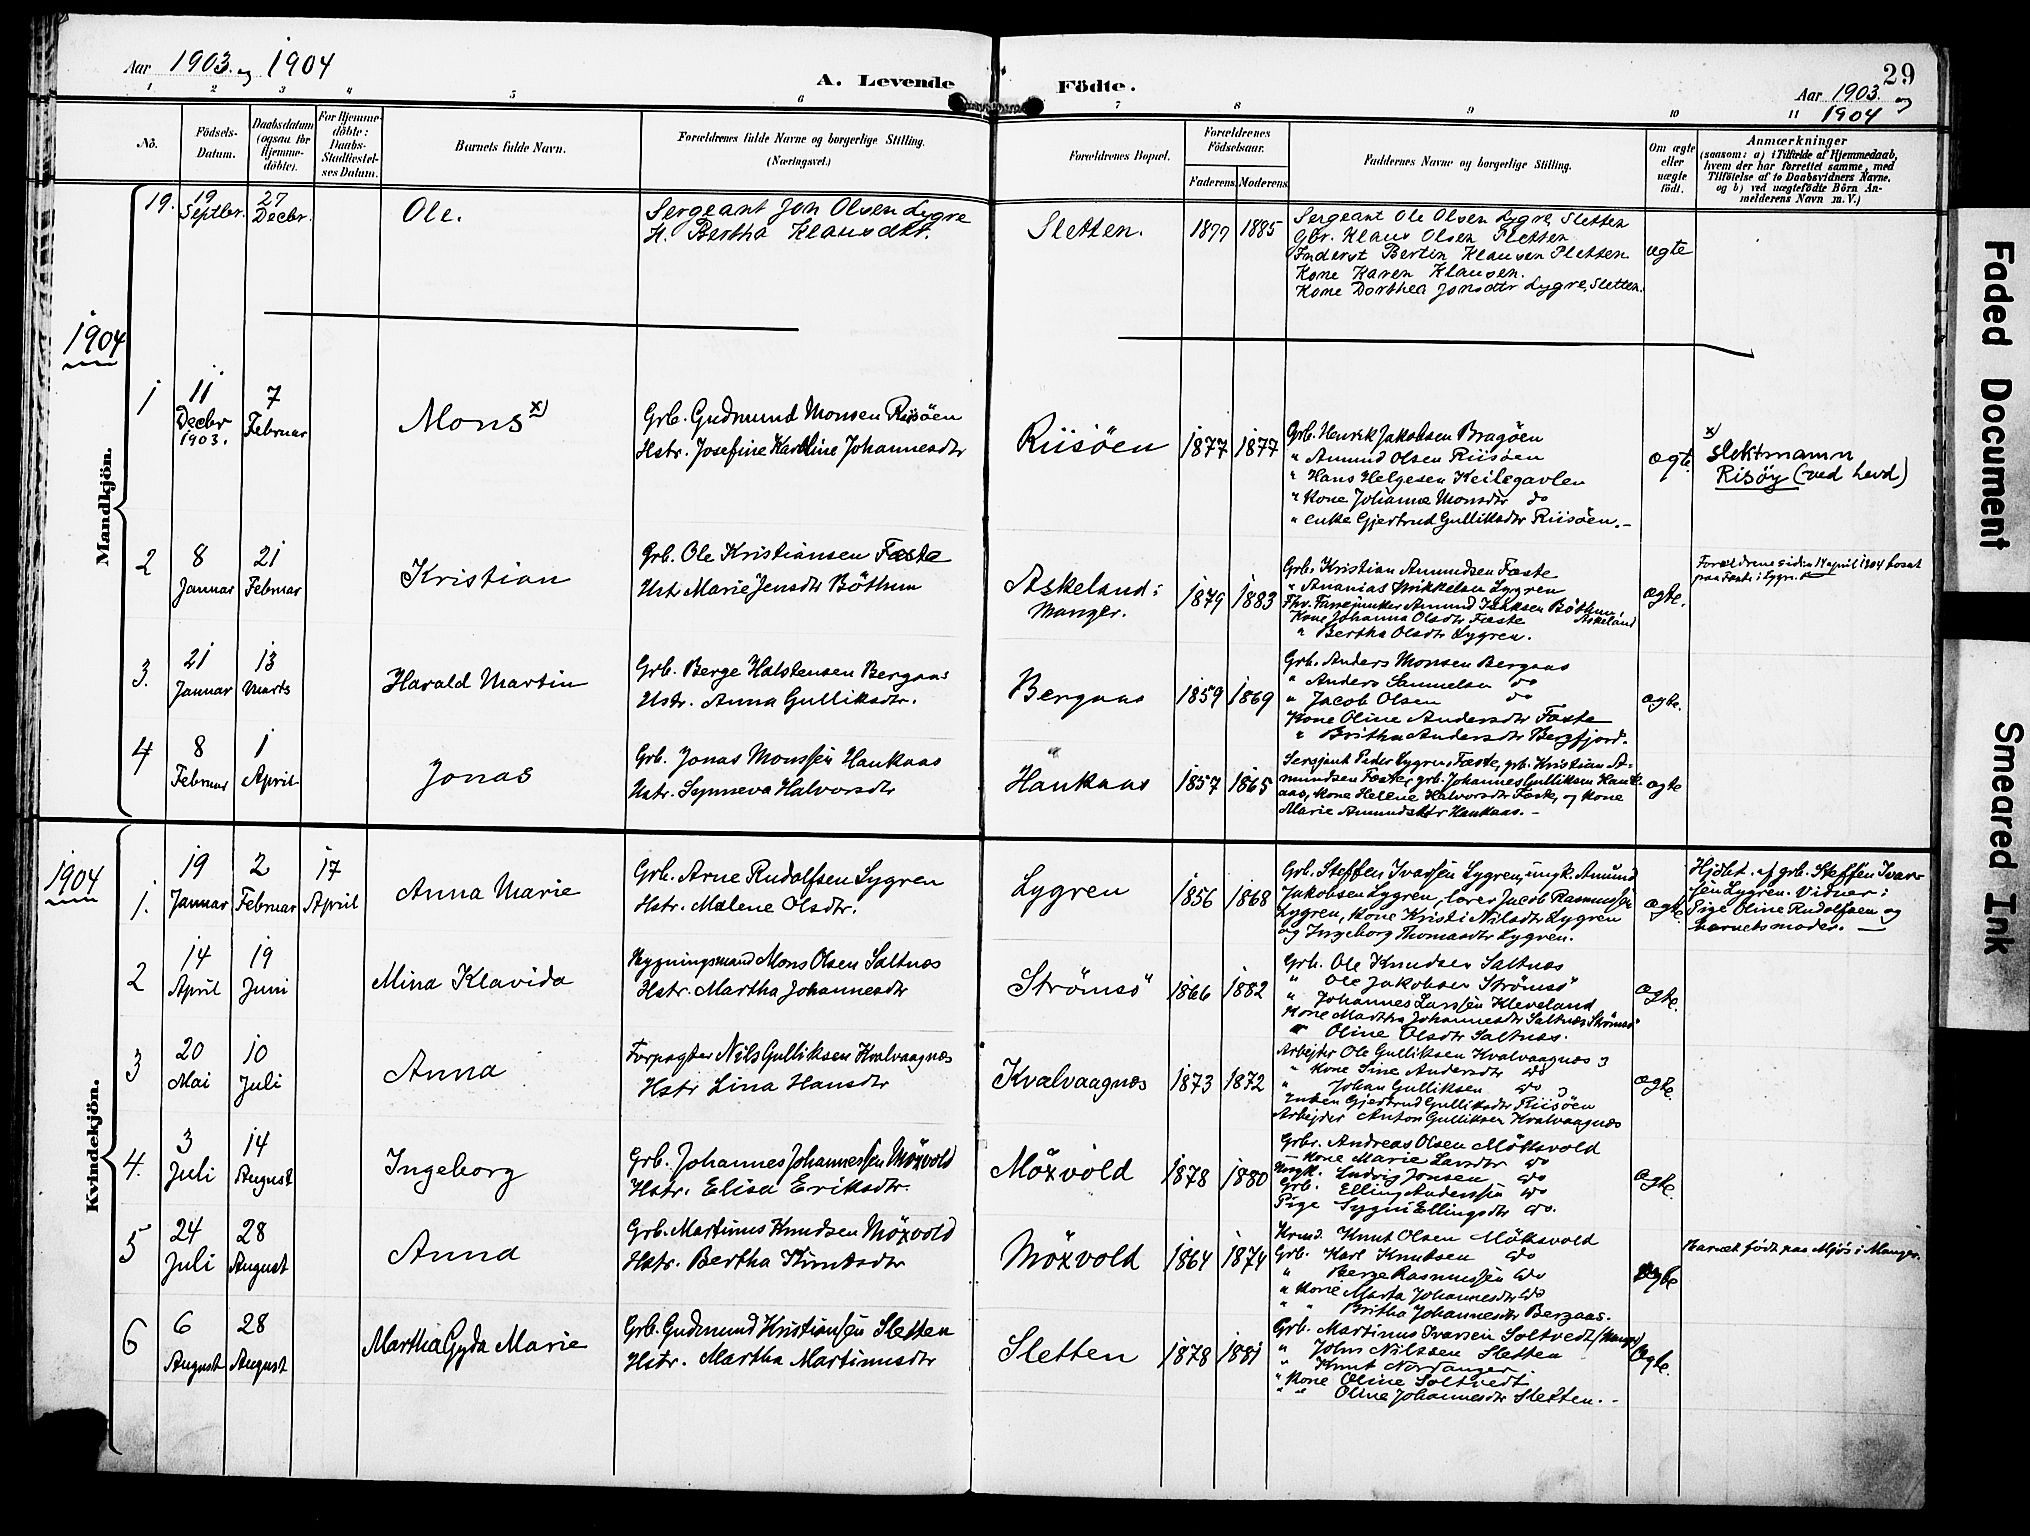 Aar 1903 og 1904
A. Levende Födte.
29
Aar 1903 og
1904
1 2 3 4 5 6 7 8 9 10 11
No.
Födsels-
Datum.
Daabsdatum
(ogsaa for
Hjemme-
döbte).
For Hjemme-
döbte:
Daabs-
Stadfæstel-
ses Datum.
Barnets fulde Navn.
Forældrenes fulde Navne og borgerlige Stilling.
(Næringsvei.)
Forældrenes Bopæl.
Forældrenes
Födselsaar.
Faderens. Moderens.
Faddernes Navne og borgerlige Stilling.
Om ægte
eller
uægte
födt.
Anmærkninger
(saasom: a) i Tilfælde af Hjemmedaab,
hvem der har forrettet samme, med
Tilföielse af to Daabsvidners Navne,
og b) ved uægtefödte Börn An-
melderens Navn m. V.)
19. 19 Septbr. 27 Decbr. Ole.
Sergeant Jon Olsen Lygre
H. Bertha Klausdtr.
Sletten. 1877 1885
Sergeant Ole Olsen Lygre, Sletten
Gbr. Klaus Olsen Sletten
Inderst Bertin Klausen Sletten
Kone Karen Klausen.
Kone Dorthea Jonsdtr Lygre, Sletten.
ægte
1904
Mandkjön.
1 11 Decbr 1903. 7 Februar Mons x)
Grb. Gudmund Monsen Riisöen
Hstr. Josefine Karoline Johannesdtr
Riisöen 1877 1877
Grb. Henrik Jakobsen Bragöen
" Amund Olsen Riisöen
" Hans Helgesen Keilegavlen
" Kone Johanne Monsdtr do
" Enke Gjertrud Gulliksdtr Riisöen.-
ægte.
x)
slektsnamn
Risöy (ved Levd)
2 8 Januar 21 Februar Kristian
Grb. Ole Kristiansen Fæste
Hst Marie Jensdtr Böthun
Askeland i
Manger. 1879 1883
Grb. Kristian Amundsen Fæste
" Ananias Mikkelsen Lygren
Kone Johanna Olsdtr Fæste Askeland
" Bertha Olsdtr Lygren.
ægte.
Forældrene siden 14 april 1904 bosat
paa Fæste i Lygre.
3. 21 Januar 13 Marts Harald Martin
Grb. Berge Halstensen Bergaas
Hstr. Anna Gulliksdtr.
Bergaas 1859 1869
Grb. Anders Monsen Bergaas
" Anders Samuelsen do
" Jacob Olsen do
Kone Oline Andersdtr Fæste
" Britha Andersdtr Bergfjord.
ægte.
4 8 Februar 1 April Jonas
Grb. Jonas Monssen Haukaas
Hstr. Synneva Halvorsdtr
Haukaas 1857 1865
Sersjant Peder Lygren Fæste, grb. Kristian A-
mundsen Fæste, grb. Johannes Gulliksen Hauk-
aas, Kone Helene Halvorsdtr Fæste, og Kone
Marie Amundsdtr Haukaas.-
ægte
1904
Kvindekjön.
1. 19 Januar 2 Februar 17 April Anna Marie
Grb. Arne Rudolfsen Lygren
Hstr. Malene Olsdtr.
Lygren 1856 1868
Grb. Steffen Ivarsen Lygren, ungk. Amund
Jakobsen Lygren, lærer Jacob Rasmussen
Lygren, Kone Kristi Nilsdtr Lygren
og Ingeborg Thomasdtr Lygren.
ægte
Hjdbt. af grb. Steffen Ivar-
sen Lygren. Vidner:
Pige Oline Rudolfsen og
barnets moder.
2 14 April 19 Juni Mina Klavida
Bygningsmand Mons Olsen Saltnæs
Hstr. Martha Johannesdtr
Strömsö 1866 1882
Grb. Ole Knudsen Saltnæs
" Ole Jakobsen Strömsö
" Johannes Larssen Kleveland
Kone Martha Johannesdtr Saltnæs Strömsö
" Oline Olsdtr Saltnæs.
ægte.
3 20 Mai 10 Juli Anna
Forpagter Nils Gulliksen Kvalvaagnæs
Hstr Lina Hansdtr
Kvalvaagnæs 1873 1872
Arbejder Ole Gulliksen Kvalvaagnæs
" Kone Sine Andersdtr do
" Johan Gulliksen do
Enken Gjertrud Gulliksdtr Riisöen
Arbejder Anton Gulliksen Kvalvaagnæs
ægte.
4. 3 Juli 14 August Ingeborg
Grb. Johannes Johannessen Möxvold
Hstr. Elisa Eriksdtr.
Möxvold 1878 1880
Grbr. Andreas Olsen Möksvold
Kone Marie Larsdtr do
Ungk. Ludvig Jonsen do
Grb. Elling Anderssen do
Pige Sygni Ellingsdtr do.
ægte.
5 24 Juli 28 August Anna
Grb. Martinus Knudsen Möxvold
Hstr. Bertha Knutsdtr
Möxvold 1864 1874
Knut Olsen Möksvold
Grb. Karl Knutsen do
" Berge Rasmussen do
" Kone Marta Johannesdtr do
" " Britha Johannesdtr Bergaas.
ægte
Barnet födt paa Mjös i Manger.
6 6 August 28 August Martha Gyda Marie
Grb. Gudmund Kristiansen Sletten
Hstr. Martha Martinusdtr
Sletten 1878 1881
Grb. Martinus Ivarsen Soltvedt (Manger)
" John Nilssen Sletten
" Knut Nordanger
" Kone Oline Soltvedt
" " Oline Johannesdtr Sletten.-
ægte.
Faded Document
Smeared Ink